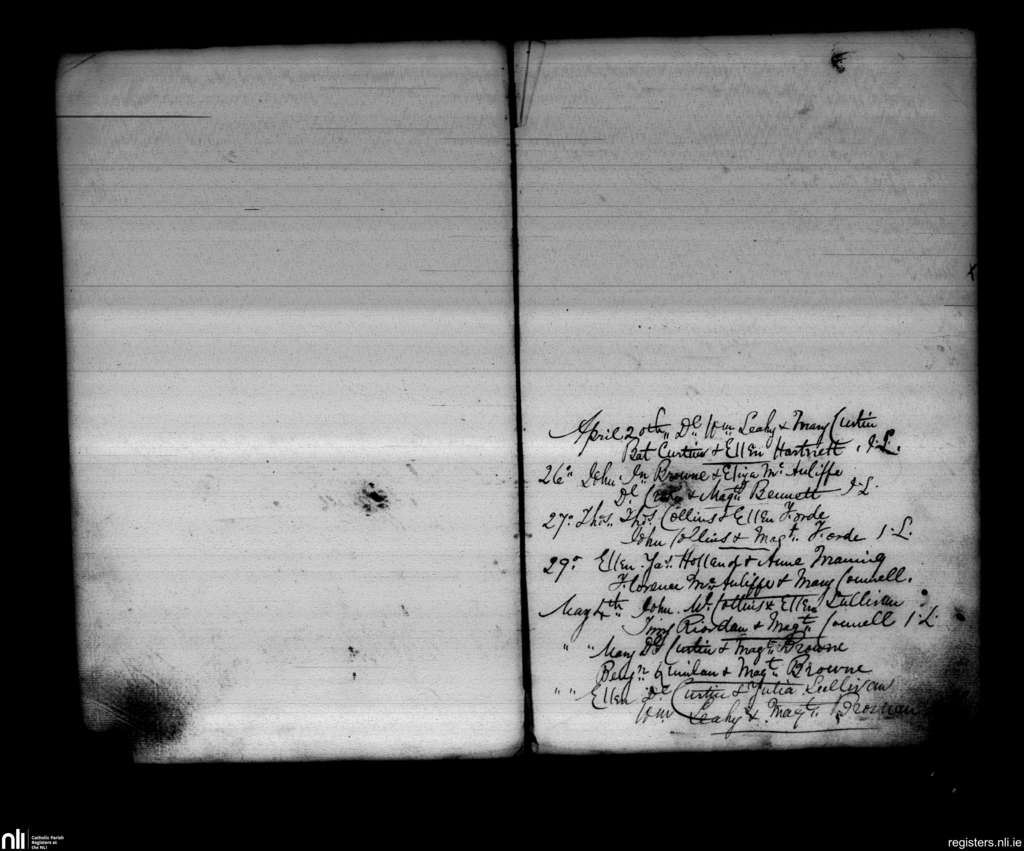 April 20th Dl. Wm Leahy & Mary Curtin
Bat Curtin & Ellen Hartnett . J.L.
26th John Jn Browne & Eliza McAuliffe
Dl & Magt. Bennett J.L.
27th Thos. Thos Collins & Ellen Forde
John Collins & Magt. Forde J.L.
29th Ellen Jas. Holland & Anne Manning
Florence McAuliffe & Mary Connell.
May 4th John Collins & Ellen Sullivan
Timy Riordan & Magt. Connell J.L.
" " Mary Dl Curtin & Magt. Browne
Benjn Quinlan & Magt. Browne
" " Ellen Dl Curtin & Julia Sullivan
Wm Leahy & Magt. Brosnan
nli
Catholic Parish
Registers at
the NLI
registers.nli.ie